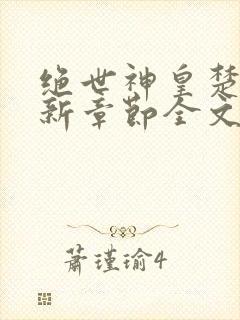 绝世神皇楚
新章节全文
萧瑾瑜4